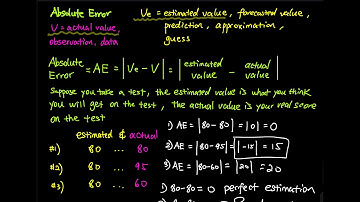 Absolute Error
V = actual value,
observation, data
Ve = estimated value, forecasted value,
prediction, approximation,
guess
Absolute Error = AE = |Ve - V| = | estimated value - actual value |
Suppose you take a test, the estimated value is what you think
you will get on the test, the actual value is your real score
on the test
estimated & actual
#1) 80 ... 80
#2) 80 ... 95
#3) 80 ... 60
1) AE = |80-80| = |0| = 0
2) AE = |80-95| = |-15| = 15
3) AE = |80-60| = |20| = 20
1) 80-80 = 0 perfect estimation